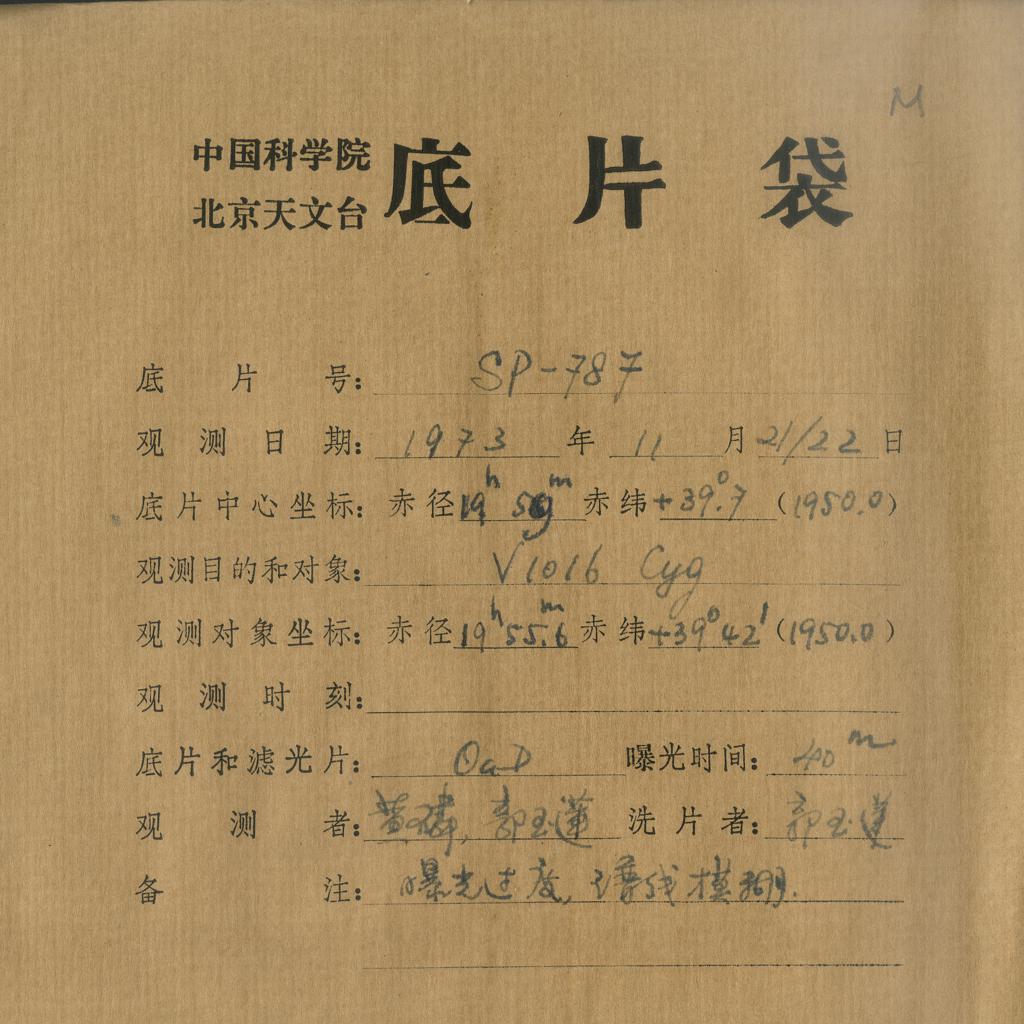 M
中国科学院
北京天文台
底片袋
底片号: SP-787
观测日期: 1973年11月21/22日
底片中心坐标: 赤径19ʰ59ᵐ赤纬+39⁰.7(1950.0)
观测目的和对象: V1016 Cyg
观测对象坐标: 赤径19ʰ55.6ᵐ赤纬+39⁰42'(1950.0)
观测时刻:
底片和滤光片: OaD 曝光时间: 40ᵐ
观测者: 黄磷, 郭玉莲 洗片者: 郭玉莲
备注: 曝光过度, 谱线模糊.